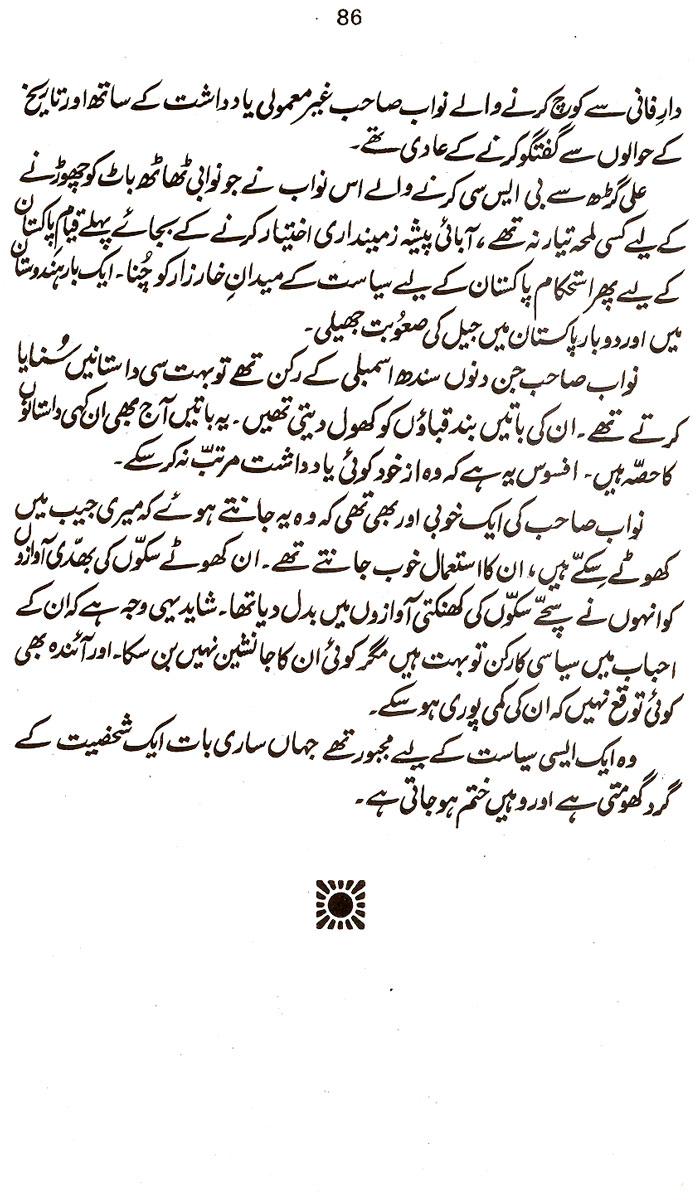 86
دارِ فانی سے کوچ کرنے والے نواب صاحب غیر معمولی یادداشت کے ساتھ اور تاریخ
کے حوالوں سے گفتگو کرنے کے عادی تھے۔
علی گڑھ سے بی ایس سی کرنے والے اس نواب نے جو نوابی ٹھاٹھ باٹ کو چھوڑنے
کے لیے کسی لمحہ تیار نہ تھے، آبائی پیشہ زمینداری اختیار کرنے کے بجائے پہلے قیام پاکستان
کے لیے پھر استحکام پاکستان کے لیے سیاست کے میدانِ خارزار کو چُنا۔ ایک بار ہندوستان
میں اور دو بار پاکستان میں جیل کی صعوبت جھیلی۔
نواب صاحب جن دنوں سندھ اسمبلی کے رکن تھے تو بہت سی داستانیں سُنایا
کرتے تھے۔ ان کی باتیں بند قباؤں کو کھول دیتی تھیں۔ یہ باتیں آج بھی ان کہی داستانوں
کا حصّہ ہیں۔ افسوس یہ ہے کہ وہ از خود کوئی یادداشت مرتّب نہ کر سکے۔
نواب صاحب کی ایک خوبی اور بھی تھی کہ وہ یہ جانتے ہوئے کہ میری جیب میں
کھوٹے سِکّے ہیں، ان کا استعمال خوب جانتے تھے۔ ان کھوٹے سکّوں کی بھدّی آوازوں
کو انہوں نے سچّے سکّوں کی کھنکتی آوازوں میں بدل دیا تھا۔ شاید یہی وجہ ہے کہ ان کے
احباب میں سیاسی کارکن تو بہت ہیں مگر کوئی ان کا جانشین نہیں بن سکا۔ اور آئندہ بھی
کوئی توقع نہیں کہ ان کی کمی پوری ہو سکے۔
وہ ایک ایسی سیاست کے لیے مجبور تھے جہاں ساری بات ایک شخصیت کے
گرد گھومتی ہے اور وہیں ختم ہو جاتی ہے۔